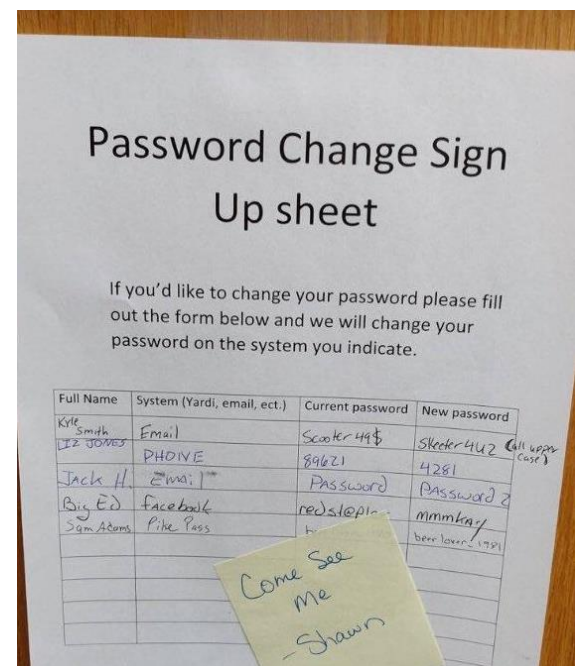 Password Change Sign
Up sheet
If you'd like to change your password please fill
out the form below and we will change your
password on the system you indicate.
Full Name System (Yardi, email, ect.) Current password New password
Kyle
Smith Email Scooter49$ Skeeter4U2 (all upper
case)
LIZ JONES PHONE 89621 4281
Jack H. Email Password PASSword 2
Big Ed facebook mmmkay
Sam Adams Pike Pass beer lover_1981
Come See
Me
-Shawn